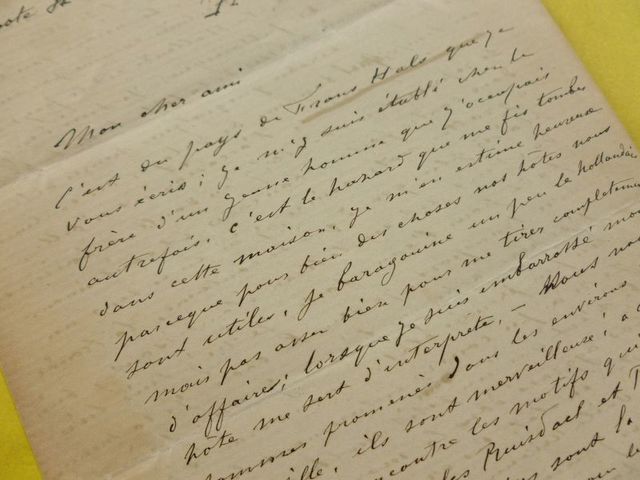 Mon cher ami
C'est du pays de Frans Hals que je
vous écris; je m'y suis établi chez le
frère d'un jeune homme que j'occupais
autrefois. C'est le hazard qui me fit tomber
dans cette maison, je m'en estime heureuse
parceque pour bien des choses nos hôtes nous
sont utiles, je baragouine un peu le hollandais
mais pas assez bien pour me tirer completement
d'affaires; lorsque je suis embarrassé mon
hôte me sert d'interprete. — Nous nous
sommes promenés dans les environs
ville, ils sont merveilleuse; a c
rencontre les motifs qui
les Ruisdael et
sont la